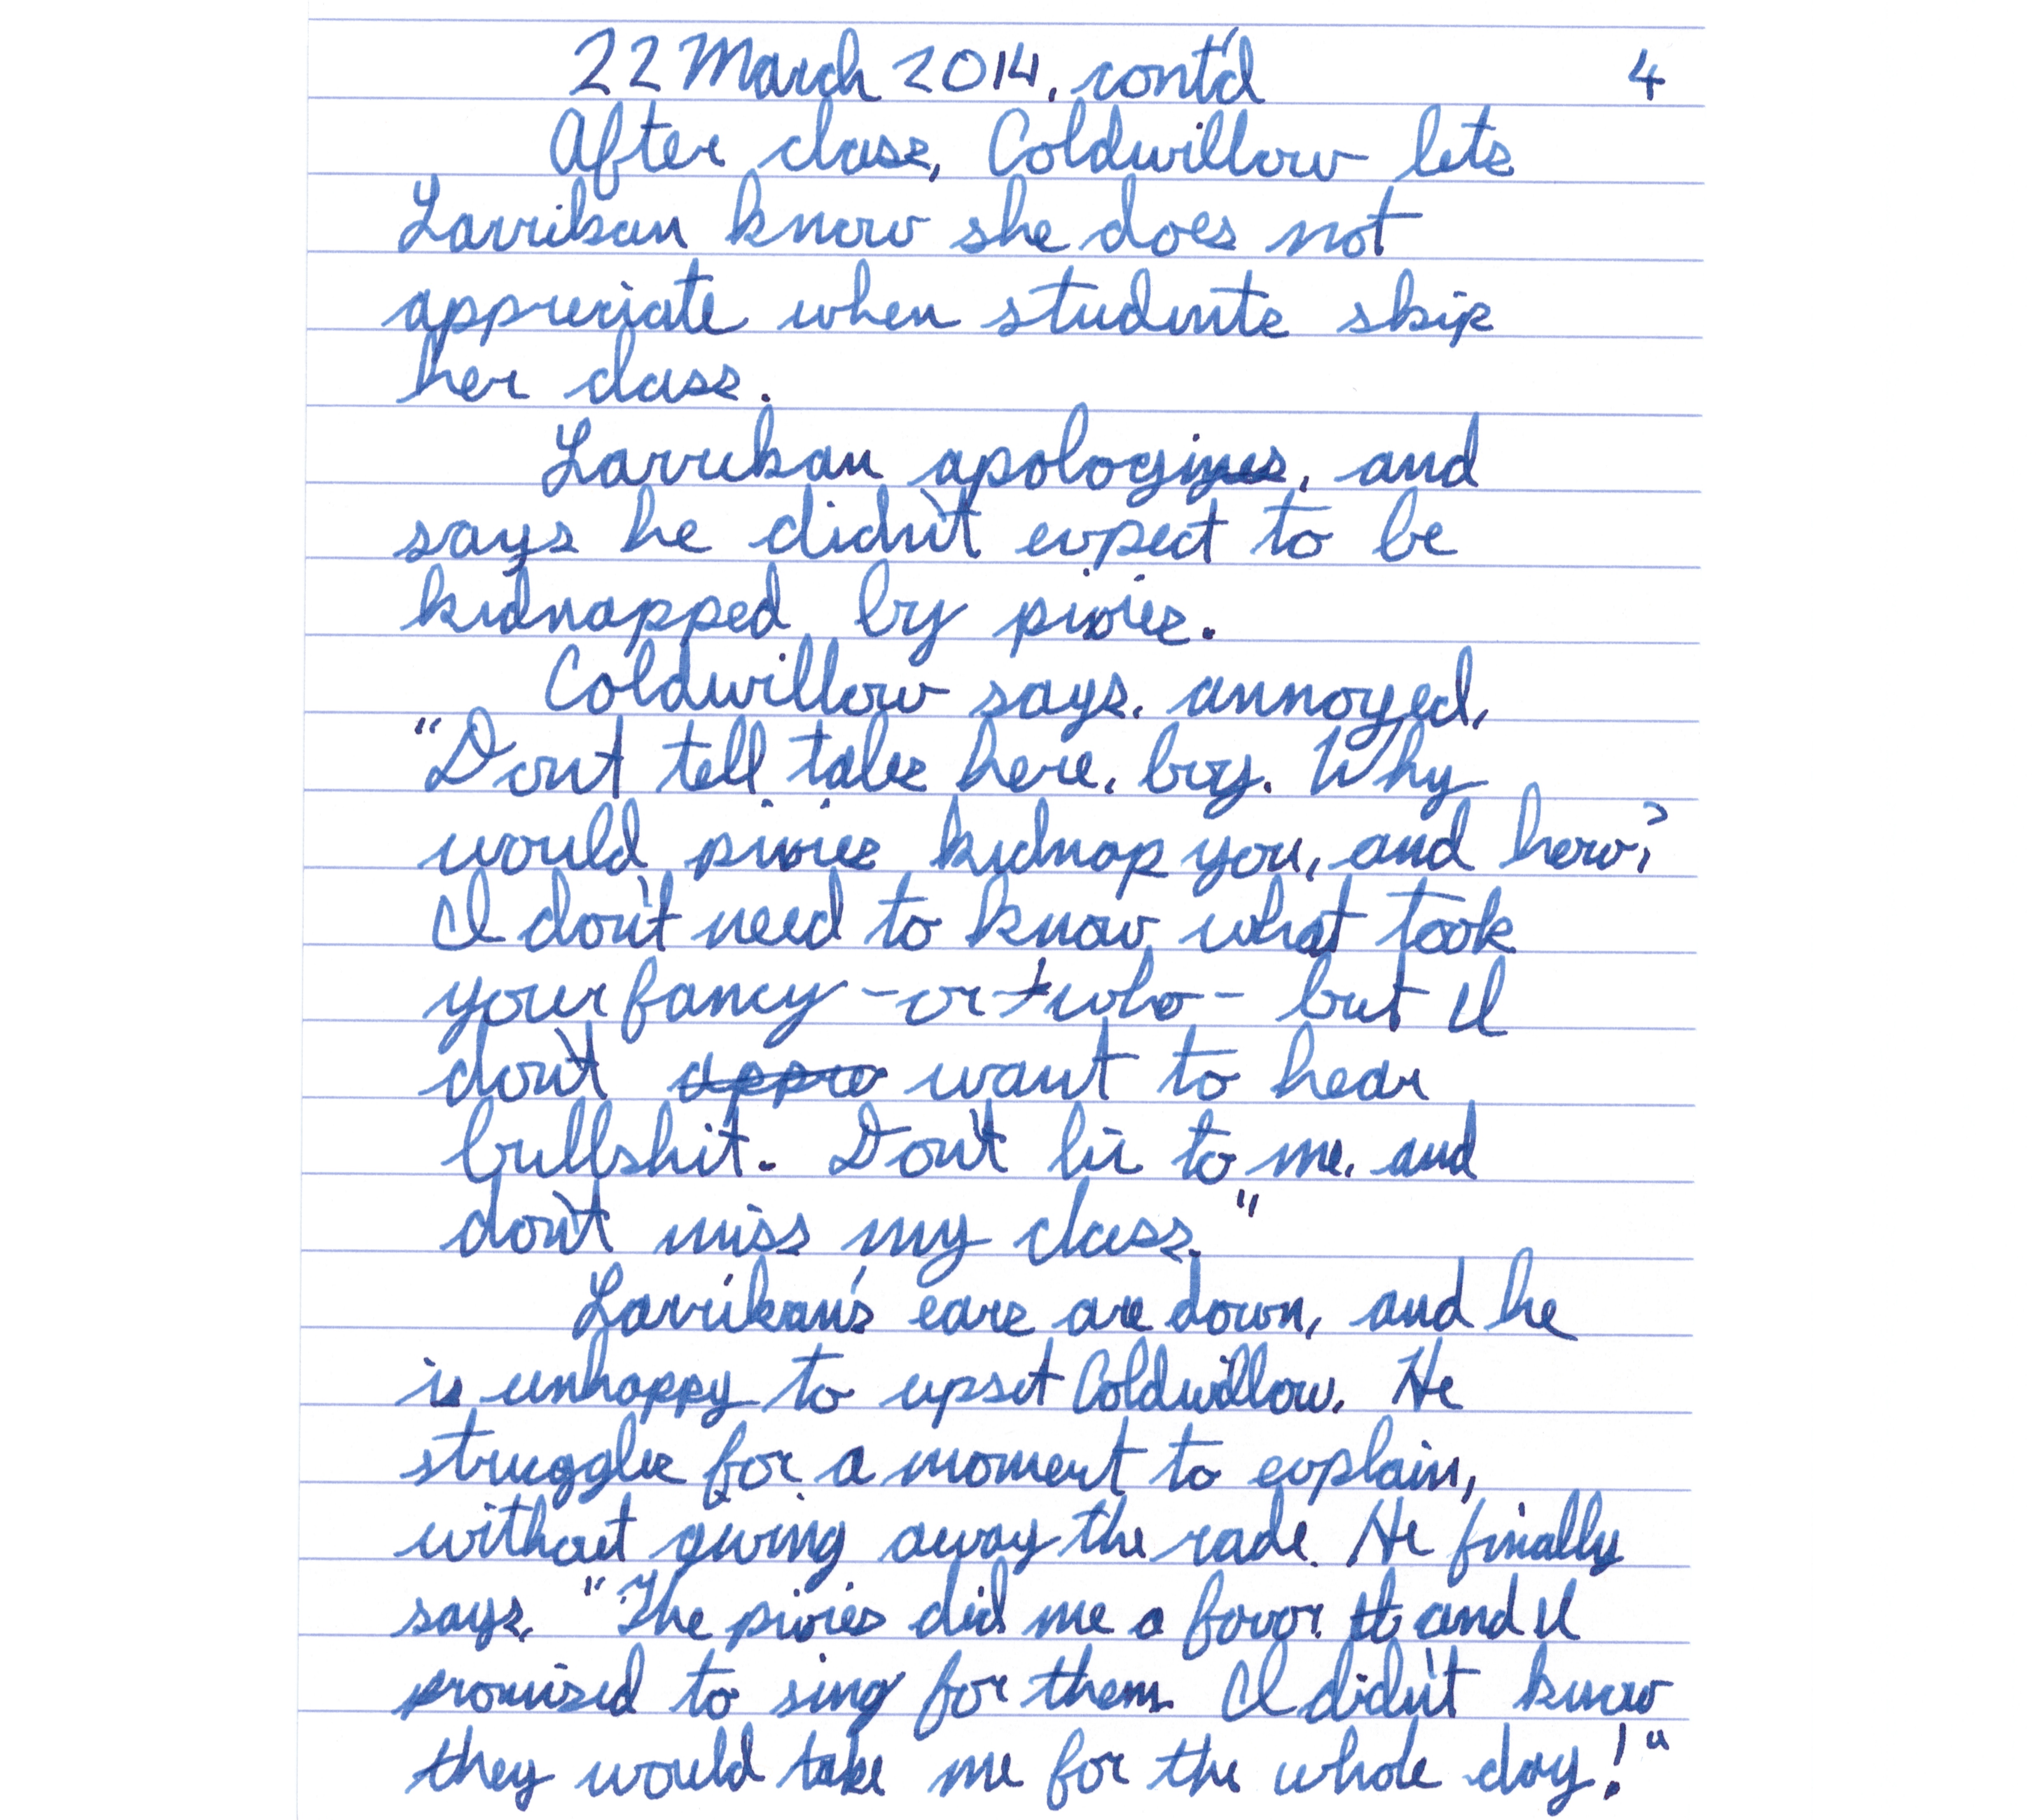 22 March 2014, cont'd 4
After class, Coldwillow lets
Larrikan know she does not
appreciate when students skip
her class.
Larrikan apologizes, and
says he didn't expect to be
kidnapped by pixies.
Coldwillow says, annoyed,
"Don't tell tales here, boy. Why
would pixies kidnap you, and how?
I don't need to know what took
your fancy - or who - but I
don't appre want to hear
bullshit. Don't lie to me, and
don't miss my class."
Larrikan's ears are down, and he
is unhappy to upset Coldwillow. He
struggles for a moment to explain,
without giving away the rade. He finally
says, "The pixies did me a favor, and I
promised to sing for them. I didn't know
they would take me for the whole day!"